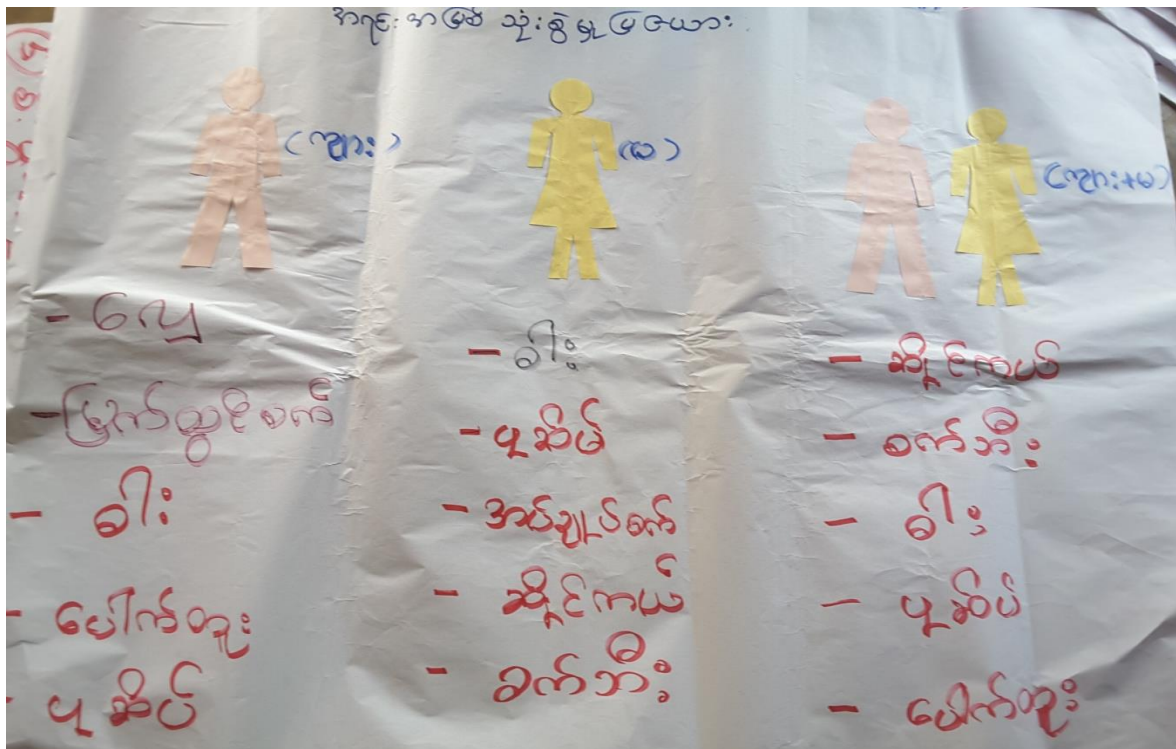 အရင်းအမြစ် သုံးစွဲမှုပြဇယား
(ကျား)
(မ)
(ကျား+မ)
- လှေ
- မြက်ထွင်စက်
- ဓါး
- ပေါက်တူး
- ပုဆိပ်
- ဓါး
- ပုဆိမ်
- အပ်ချုပ်စက်
- ဆိုင်ကယ်
- စက်ဘီး
- ဆိုင်ကယ်
- စက်ဘီး
- ဓါး
- ပုဆိပ်
- ပေါက်တူး